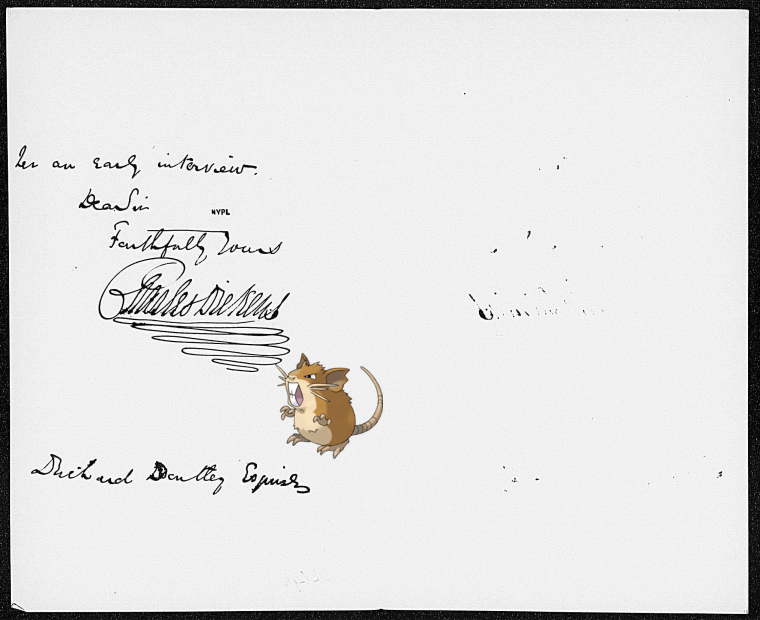 an early interview.
Dear Sir
NYPL
Faithfully Yours
Charles Dickens
Richard Bentley Esquire